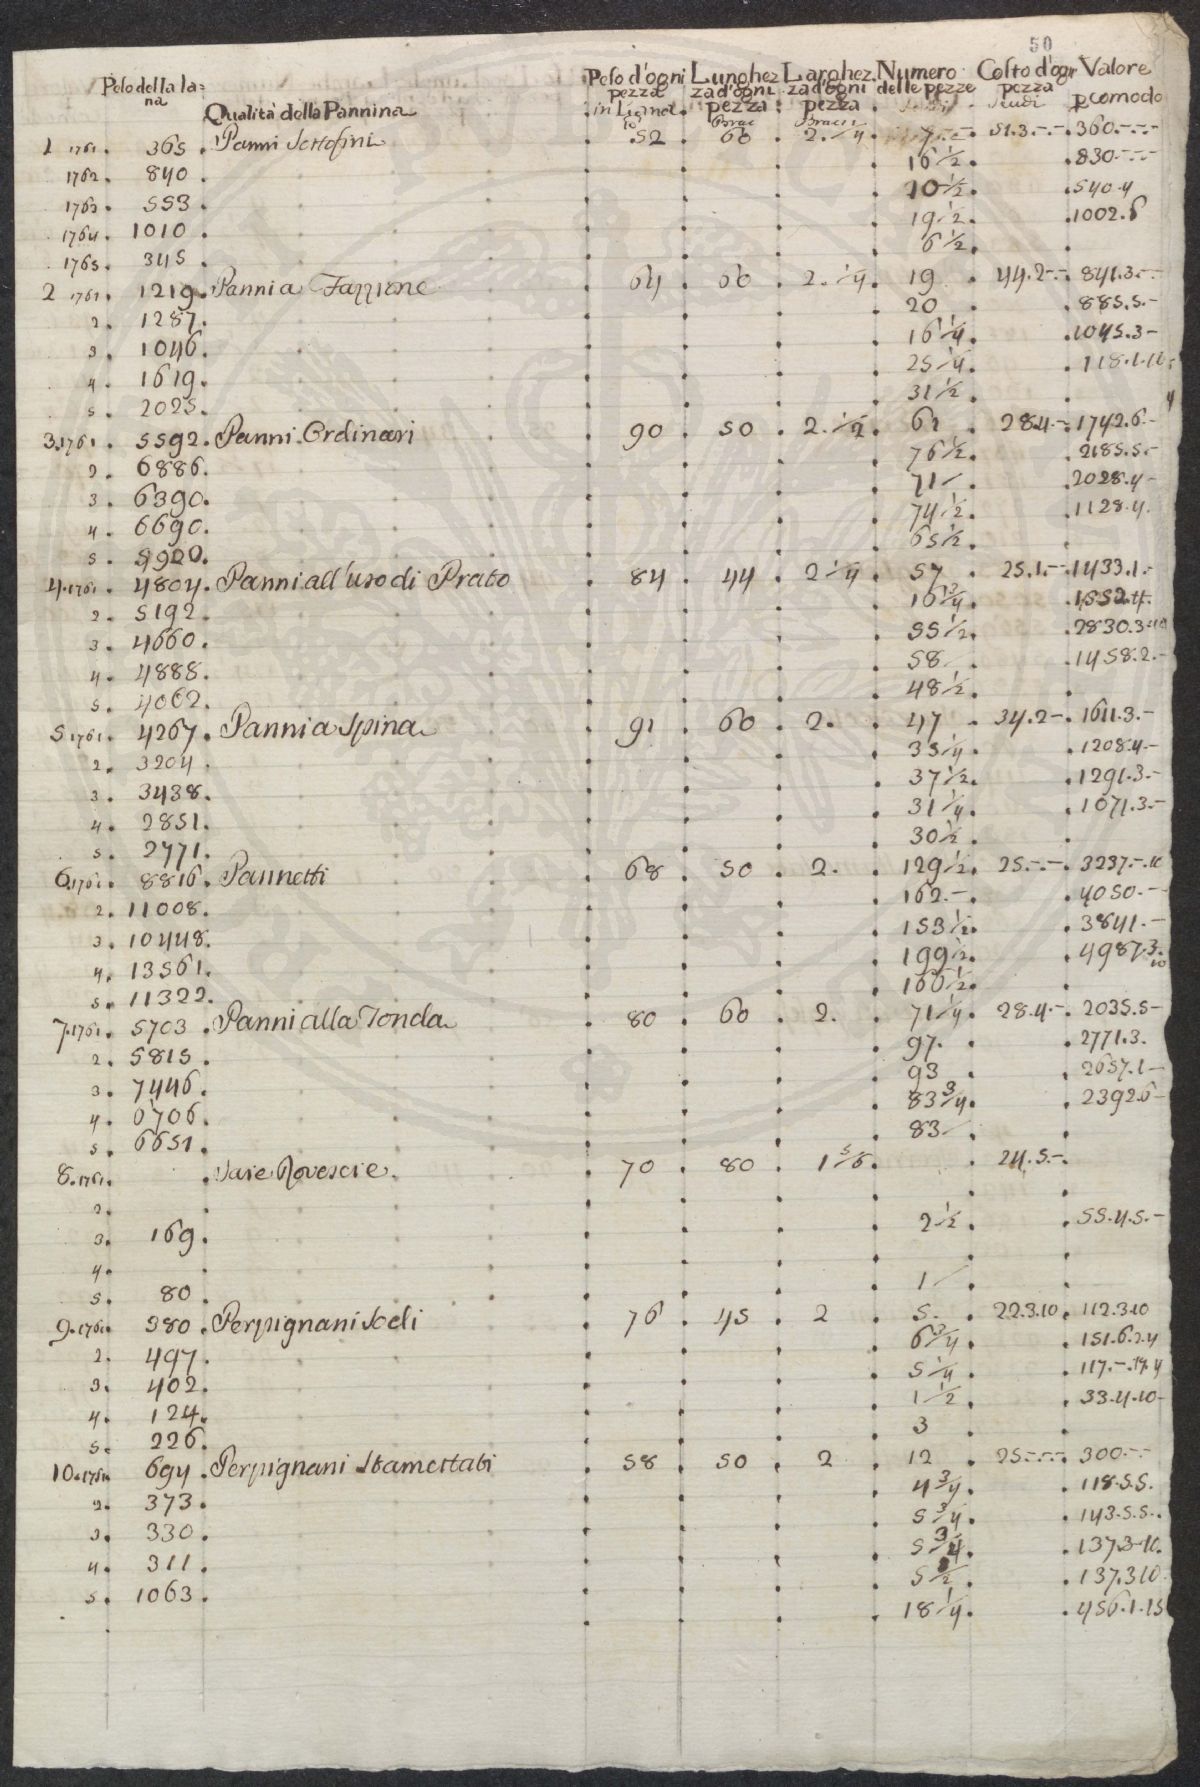 50
Peso della la=
na
Qualità della Pannina
Peso d'ogni
pezza
in Ligname
Lunghez
za d'ogni
pezza
Brac
Larghez
za d'ogni
pezza
Bracci
Numero
delle pezze
Costo d'ogni
pezza
Scudi
Valore
p comodo
1 1761. 365. Panni Sottofini 52 60 2. 1/4 7 51.3.-.- 360.-.-.-
1762. 840. 16 1/2. 830.-.-.-
1763. 553. 10 1/2. 540.4
1764. 1010. 19 1/2. 1002.6
1765. 345. 6 1/2.
2 1761. 1219. Panni a Fazzione 64 60 2. 1/4. 19 44.2-- 841.3.--
2. 1287. 20 885.5.-
3. 1046. 16 1/4. 1045.3-
4. 1619. 25 1/4. 118.1.10
5. 2025. 31 1/2. 4
3.1761. 5592. Panni Ordinari 90. 50. 2. 1/2. 62. 28.4.- 1742.6.-
2. 6886. 76 1/2. 2185.5.-
3. 6390. 71/. 2028.4-
4. 6690. 74 1/2. 1128.4.
5. 5920. 65 1/2.
4.1761. 4804. Panni all'uso di Prato 84. 44. 2 1/4. 57. 25.1.-- 1433.1.-
2. 5192. 16 3/4. 1552.4.
3. 4660. 55 1/2. 2830.3
4. 4888. 58/ 1458.2.-
5. 4062. 48 1/2.
5.1761. 4267. Panni a Spina 91. 60. 2. 47. 34.2-. 1611.3.-
2. 3204. 35 1/4. 1208.4.-
3. 3438. 37 1/2. 1291.3.-
4. 2851. 31 1/4. 1071.3.-
5. 2771. 30 1/2.
6.1761. 8816. Pannetti 68. 50. 2. 129 1/2. 25.-.-. 3237.-.10
2. 11008. 162.-. 4050.--
3. 10448. 153 1/2. 3841.-
4. 13561. 199 1/2. 4987.3.10
5. 11322. 166 1/2.
7.1761. 5703. Panni alla Tonda 80. 60. 2. 71 1/4. 28.4.-. 2035.5-
2. 5815. 97. 2771.3.
3. 7446. 93. 2657.1-
4. 6706. 83 3/4. 2392.6-
5. 6651. 83/.
8.1761. Saie Rovescie. 70. 80. 1 5/6. 24.5.-.
2.
3. 169. 2 1/2. 55.4.5.-
4.
5. 80. 1/
9.1761. 380. Perpignani Sodi 76. 45. 2. 5. 22.3.10. 112.3.10
2. 497. 6 3/4. 151.6.2.4
3. 402. 5 1/4. 117.-.17.4
4. 124. 1 1/2. 33.4.10-
5. 226. 3.
10.1761. 694. Perpignani Stamettati 58. 50. 2. 12. 25.-.-.-. 300.--
2. 373. 4 3/4. 118.5.5.
3. 330. 5 3/4. 143.5.5-.
4. 311. 5 3/4. 137.3.10.
5. 1063. 5 1/2. 137.3.10.
18 1/4. 456.1.15